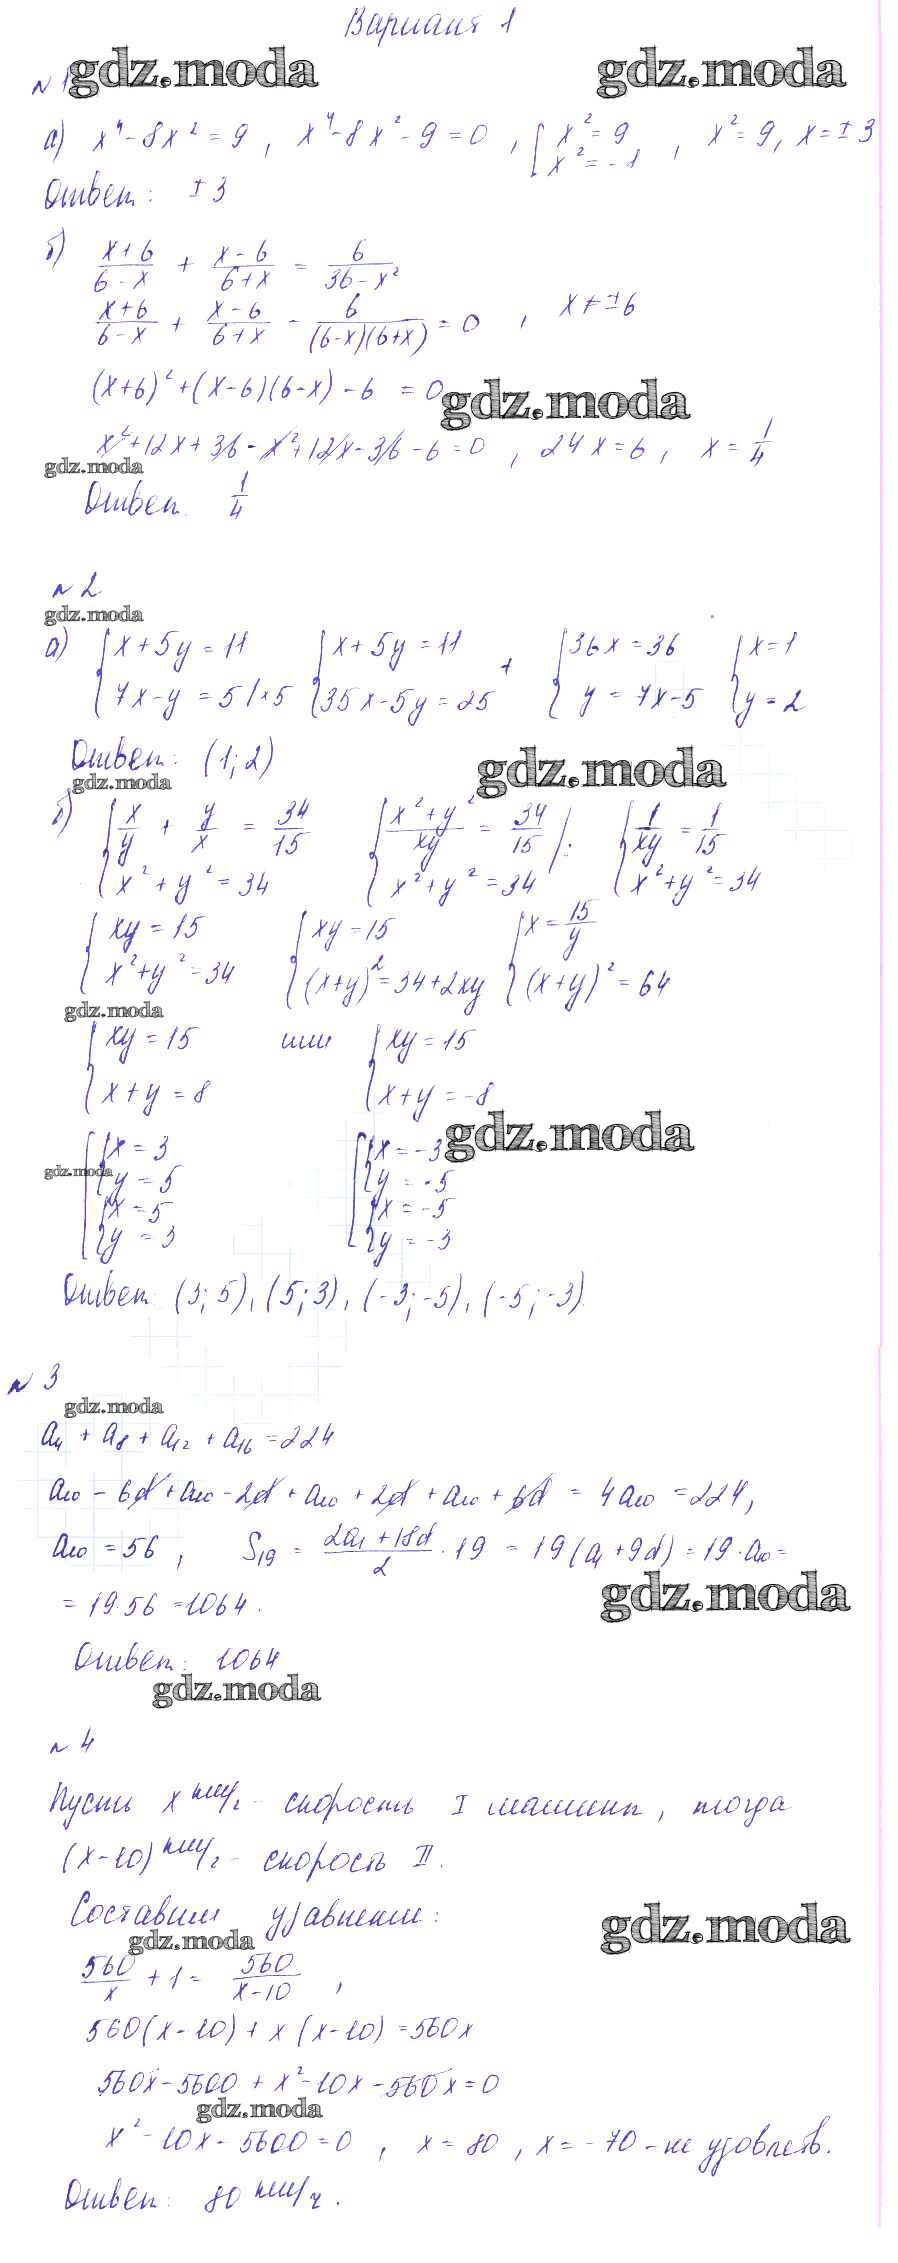 Вариант 1
№ 1
gdz.moda gdz.moda
а) x⁴ - 8x² = 9 , x⁴ - 8x² - 9 = 0 , [ x² = 9 x² = -1 , x² = 9, x = ± 3
Ответ: ± 3
б) (x+6)/(6-x) + (x-6)/(6+x) = 6/(36-x²)
(x+6)/(6-x) + (x-6)/(6+x) - 6/((6-x)(6+x)) = 0 , x ≠ ±6
(x+6)² + (x-6)(6-x) - 6 = 0
gdz.moda
x² + 12x + 36 - x² + 12x - 36 - 6 = 0 , 24x = 6 , x = 1/4
gdz.moda
Ответ. 1/4
№ 2
gdz.moda
а) { x + 5y = 11 { x + 5y = 11 + { 36x = 36 { x = 1
7x - y = 5 | ×5 35x - 5y = 25 y = 7x - 5 y = 2
Ответ: (1; 2)
gdz.moda
gdz.moda
б) { x/y + y/x = 34/15 { (x² + y²)/xy = 34/15 | : { 1/xy = 1/15
x² + y² = 34 x² + y² = 34 x² + y² = 34
{ xy = 15 { xy = 15 { x = 15/y
x² + y² = 34 (x+y)² = 34 + 2xy (x+y)² = 64
gdz.moda
{ xy = 15 или { xy = 15
x + y = 8 x + y = -8
gdz.moda
[ { x = 3 [ { x = -3
gdz.moda
y = 5 y = -5
{ x = 5 { x = -5
y = 3 y = -3
Ответ: (3; 5), (5; 3), (-3; -5), (-5; -3).
№ 3
gdz.moda
a₄ + a₈ + a₁₂ + a₁₆ = 224
a₁₀ - 6d + a₁₀ - 2d + a₁₀ + 2d + a₁₀ + 6d = 4a₁₀ = 224,
a₁₀ = 56 , S₁₉ = (2a₁ + 18d)/2 · 19 = 19(a₁ + 9d) = 19 · a₁₀ =
gdz.moda
= 19·56 = 1064.
Ответ: 1064
gdz.moda
№ 4
Пусть x км/ч - скорость I машины, тогда
(x-10) км/ч - скорость II.
Составим уравнение:
gdz.moda
gdz.moda
560/x + 1 = 560/(x-10) ,
560(x-10) + x(x-10) = 560x
560x - 5600 + x² - 10x - 560x = 0
gdz.moda
x² - 10x - 5600 = 0 , x = 80 , x = -70 - не удовлетв.
Ответ: 80 км/ч.